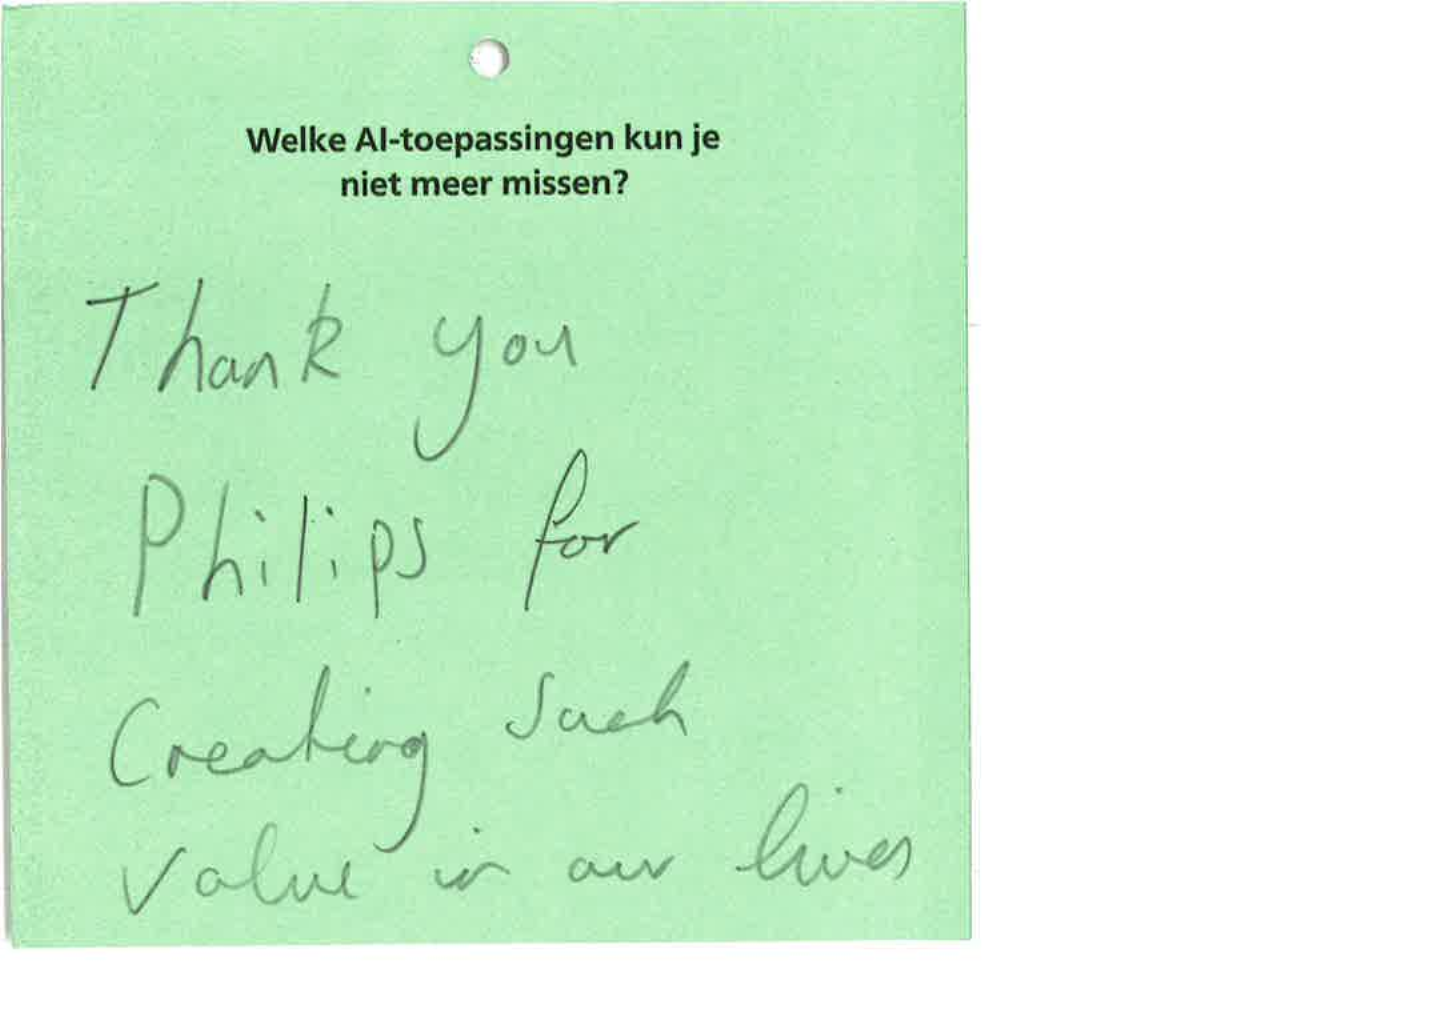 Welke AI-toepassingen kun je
niet meer missen?
Thank you
Philips for
Creating such
value in our lives